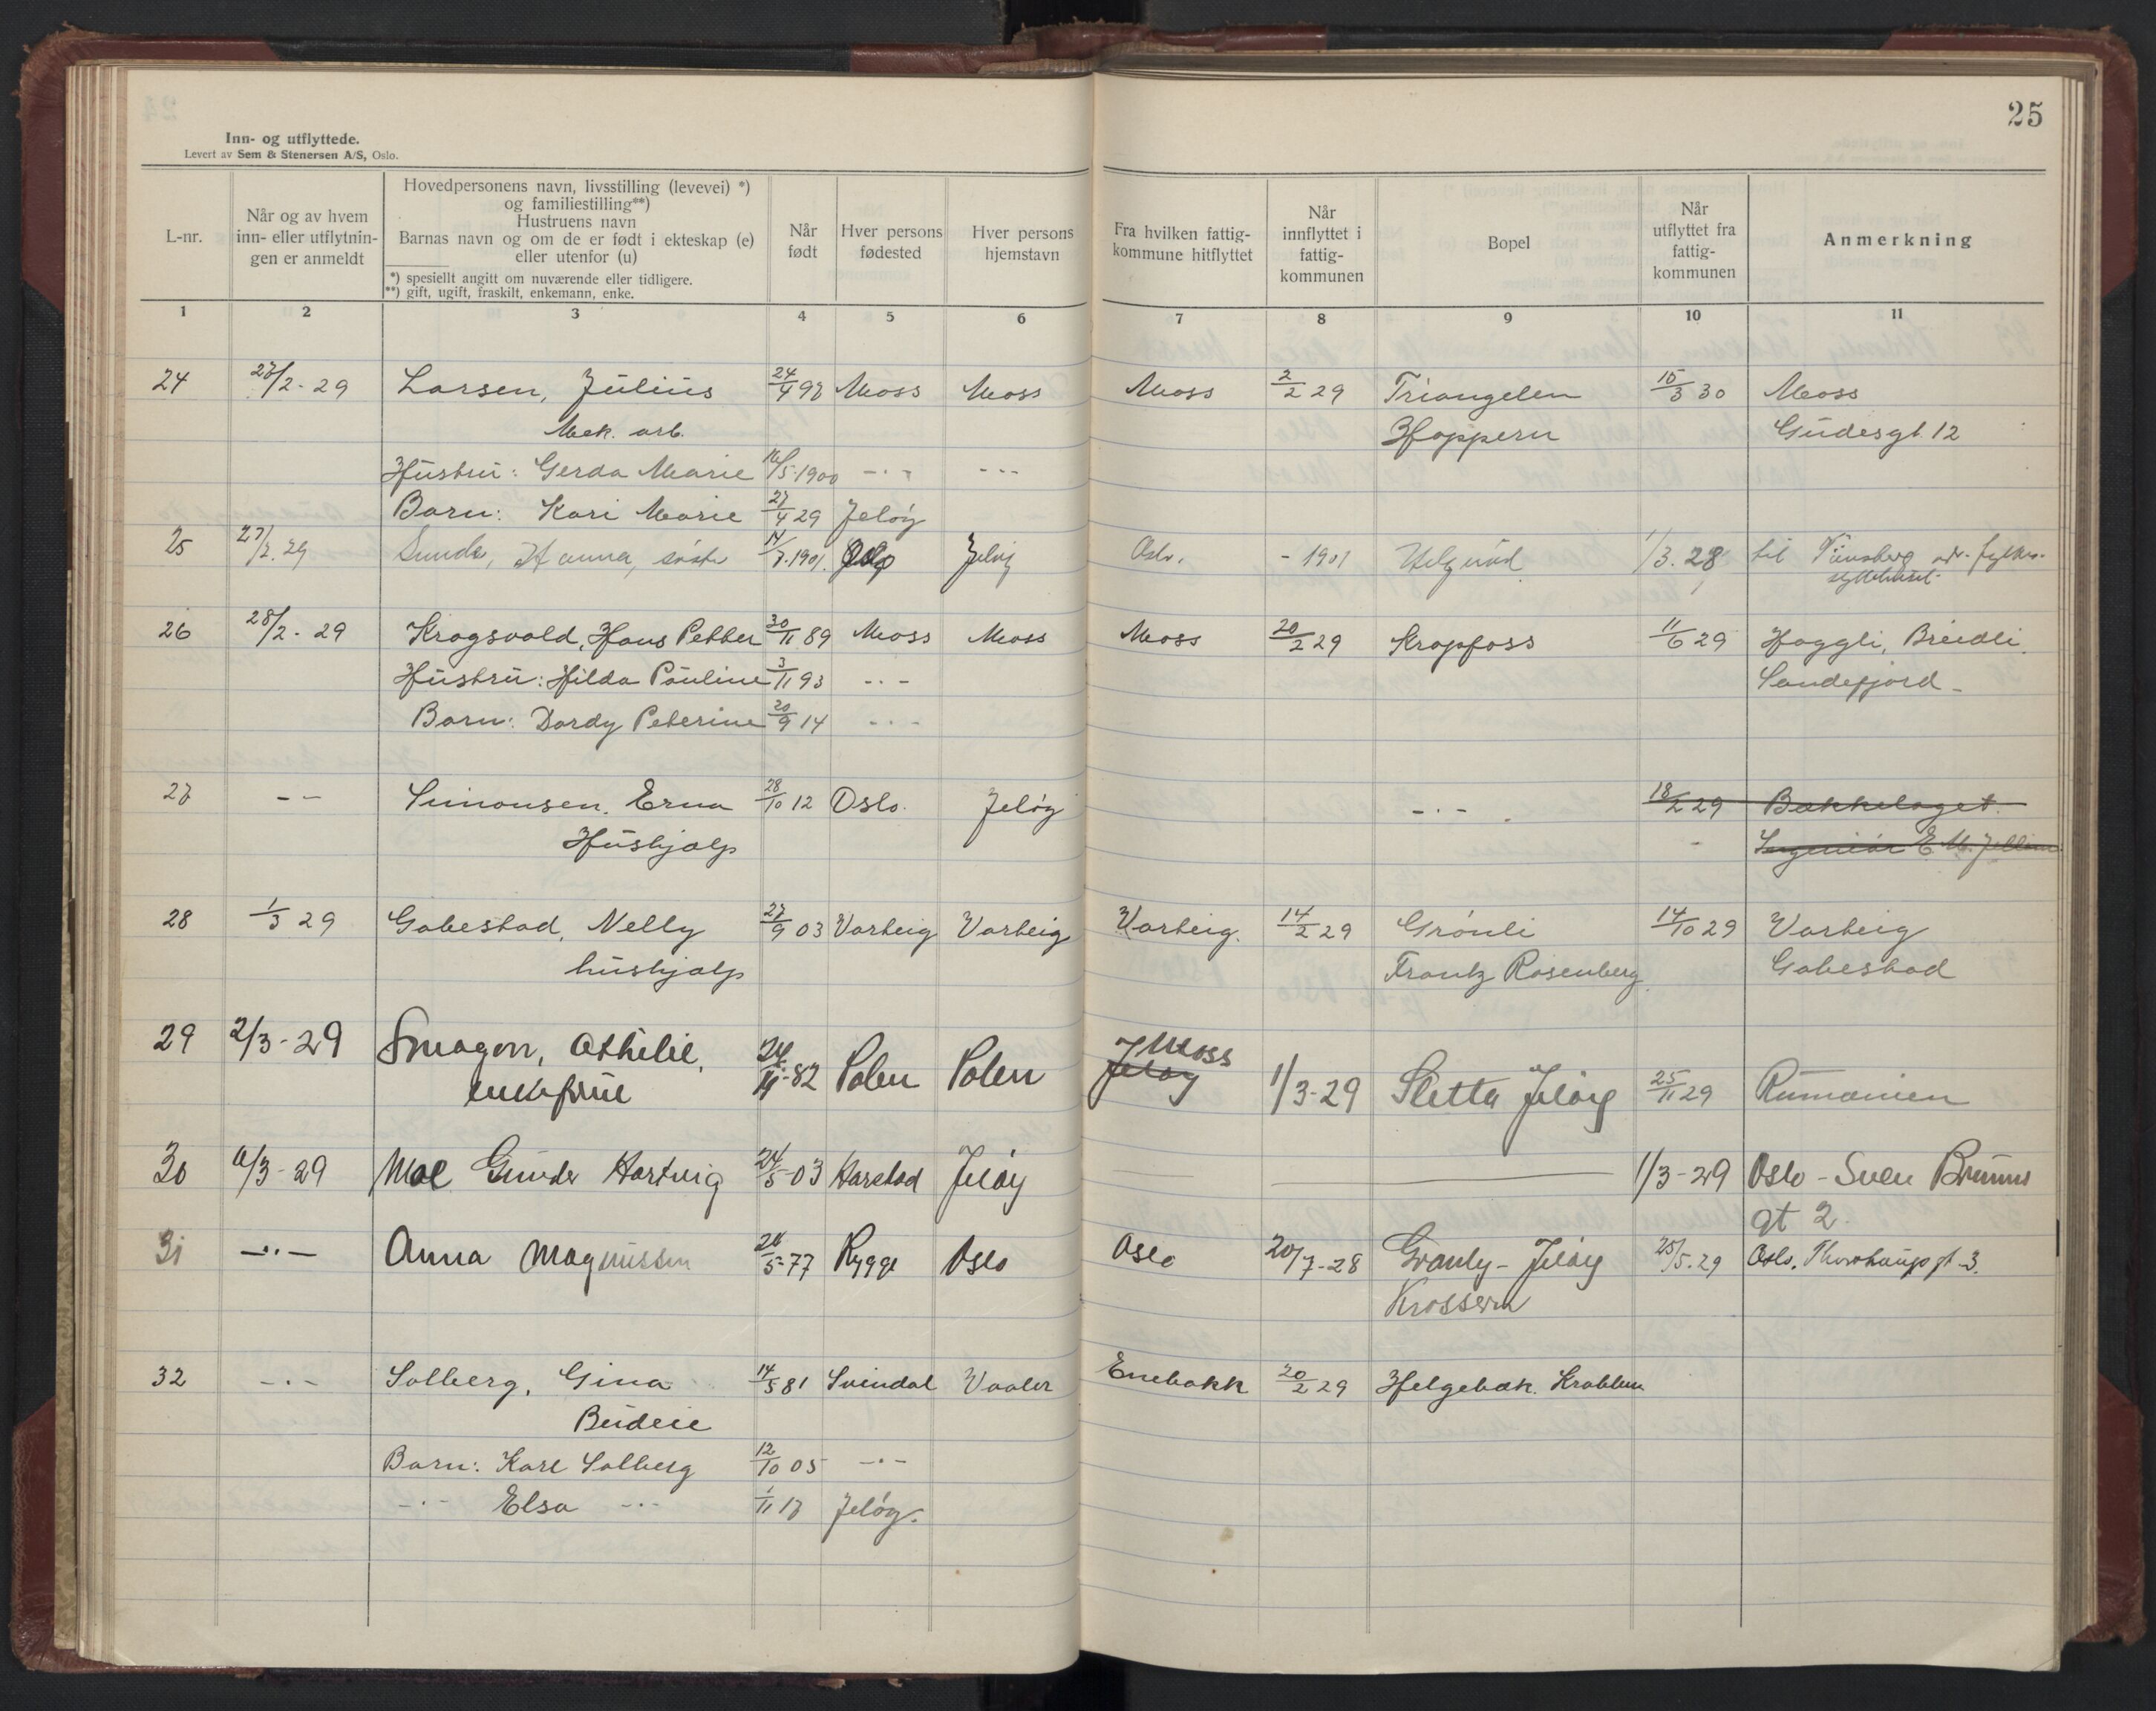 25
Inn- og utflyttede.
Levert av Sem & Stenersen A/S, Oslo.
L-nr.
Når og av hvem inn- eller utflytnin-gen er anmeldt
Hovedpersonens navn, livsstilling (levevei) *)
og familiestilling**)
Hustruens navn
Barnas navn og om de er født i ekteskap (e)
eller utenfor (u)
*) spesiellt angitt om nuværende eller tidligere.
**) gift, ugift, fraskilt, enkemann, enke.
Når født
Hver persons fødested
Hver persons hjemstavn
Fra hvilken fattig-kommune hitflyttet
Når innflyttet i fattig-kommunen
Bopel
Når utflyttet fra fattig-kommunen
Anmerkning
1 2 3 4 5 6 7 8 9 10 11
24 27/2-29 Larsen, Julius 24/4 97 Moss Moss Moss 2/2 29 Triangelen 15/3 30 Moss
Mek. arb. Hoppern Gudesgt. 12
Hustru: Gerda Marie 16/5-1900 -"- -"-
Barn: Kari Marie 27/4 29 Jeløy
25 27/2. 29 Sunde, Hanna, 14/7.1901. Jeløy Oslo. - 1901 1/3. 28 til Tønsberg
26 28/2-29 Krogsvold, Hans Petter 30/11 89 Moss Moss Moss 20/2 29 Kropfoss 11/6 29 Haggli, Breidli.
Hustru: Hilda Pauline 3/11 93 -"- Sandefjord-
Barn: Dordy Peterine 20/9 14 -"-
27 -- Simonsen. Erna 28/10 12 Oslo. Jeløy -"- 18/2 29 Bækkelaget.
Hushjælp Ingeniør E. M.
28 1/3 29 Gabestad, Nelly 27/9 03 Varteig Varteig Varteig. 14/2 29 Grønli 14/10 29 Varteig
hushjælp Frantz Rosenberg Gabestad
29 2/3-29 Smagon, Othilie, 24/11-82 Polen Polen Jeløy Moss 1/3-29 Sletta Jeløy 25/11 29 Rumænien
enkefrue
30 6/3-29 Moe Gunder Hartvig 24/5-03 Harstad Jeløy 1/3-29 Oslo - Sven Bruuns
gt 2.
31 -"- Anna Magnussen 26/5-77 Rygge Oslo Oslo 20/7-28 Granly - Jeløy 25/5.29 Oslo, gt. 3.
Krossern
32 -"- Solberg, Gina 14/5 81 Svindal Vaaler Enebakk 20/2 29 Helgebæk. Krabben
Budeie
Barn: Kare Solberg 12/10 05 -"-
-"- Elsa -"- 1/11 17 Jeløy.